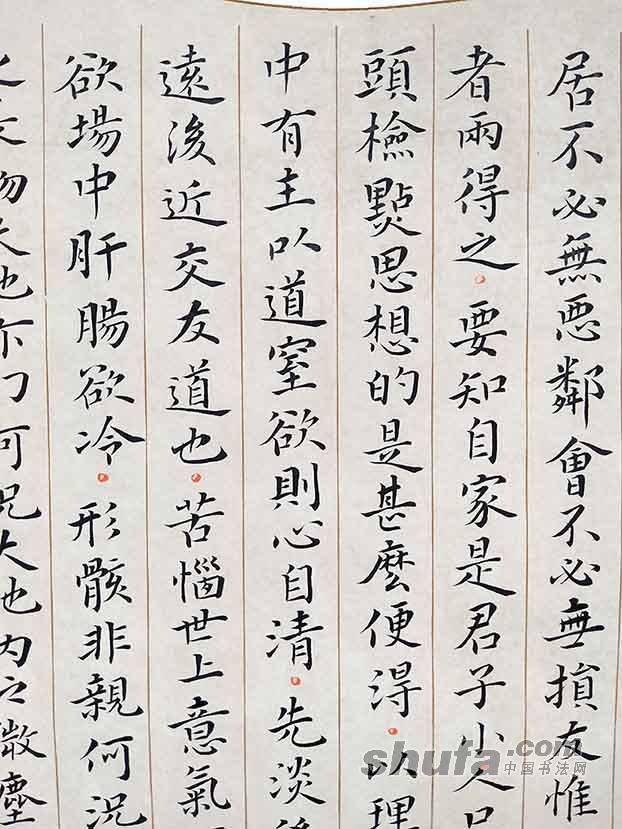 居不必無惡鄰會不必無損友惟
者兩得之要知自家是君子小人只
頭檢點思想的是甚麽便得以理
中有主以道窒欲則心自清先淡後
遠後近交友道也苦惱世上意氣
欲場中肝腸欲冷形骸非親何況
物大也亦可況大也内之微塵
shufa.com
中国书法网